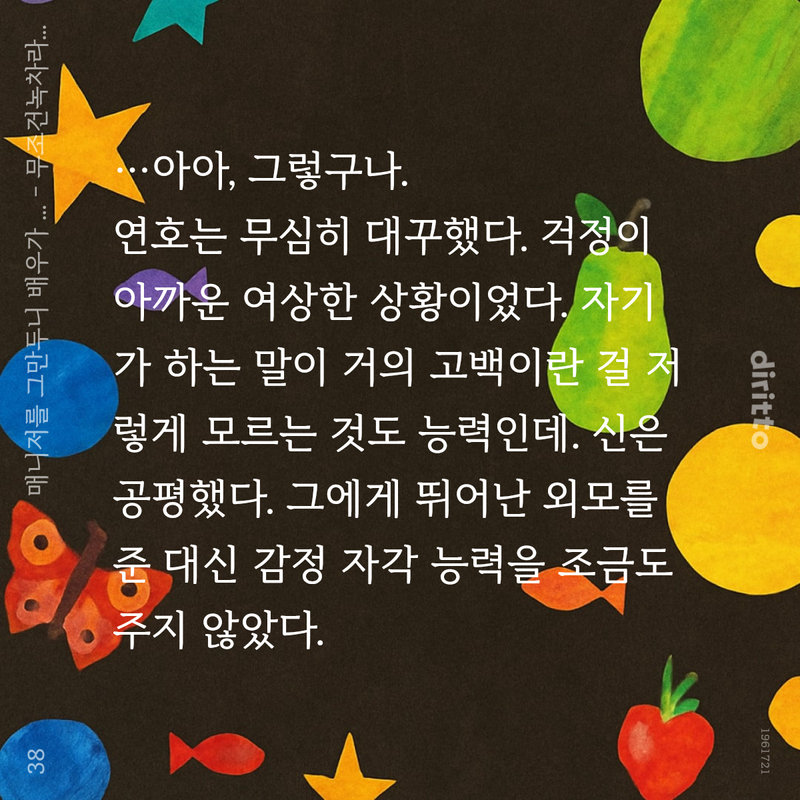 …아아, 그렇구나.
연호는 무심히 대꾸했다. 걱정이
아까운 여상한 상황이었다. 자기
가 하는 말이 거의 고백이란 걸 저
렇게 모르는 것도 능력인데. 신은
공평했다. 그에게 뛰어난 외모를
준 대신 감정 자각 능력을 조금도
주지 않았다.
매니저를 그만두니 배우가 ... - 무조건녹차라...
38
diritto
1961721